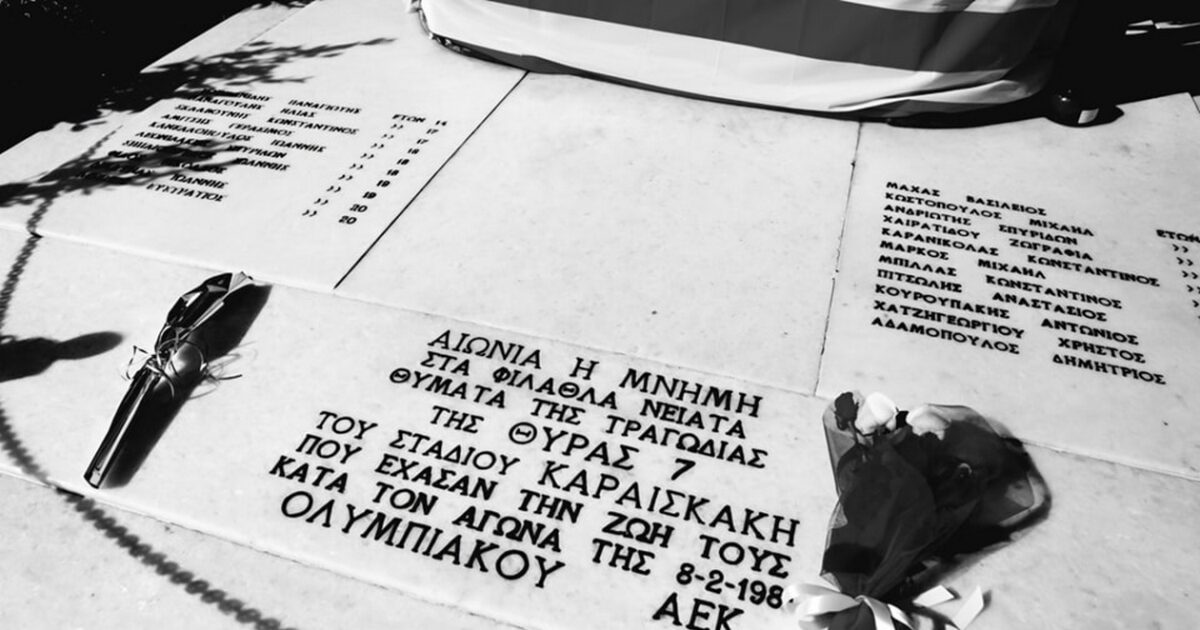 ΠΑΝΑΓΙΩΤΗΣ ΕΤΩΝ 14
ΗΛΙΑΣ >> 17
ΣΚΛΑΒΟΥΝΗΣ ΚΩΝΣΤΑΝΤΙΝΟΣ >> 17
ΑΜΙΤΣΗΣ ΓΕΡΑΣΙΜΟΣ >>
ΚΑΝΕΛΛΟΠΟΥΛΟΣ ΙΩΑΝΝΗΣ >> 18
ΣΠΥΡΙΔΩΝ >> 18
ΙΩΑΝΝΗΣ >> 19
>> 19
ΙΩΑΝΝΗΣ >> 20
ΕΥΣΤΡΑΤΙΟΣ >> 20
ΜΑΧΑΣ ΒΑΣΙΛΕΙΟΣ ΕΤΩΝ
ΚΩΣΤΟΠΟΥΛΟΣ ΜΙΧΑΗΛ >>
ΑΝΔΡΙΩΤΗΣ ΣΠΥΡΙΔΩΝ >>
ΧΑΙΡΑΤΙΔΟΥ ΖΩΓΡΑΦΙΑ >>
ΚΑΡΑΝΙΚΟΛΑΣ ΚΩΝΣΤΑΝΤΙΝΟΣ >>
ΜΑΡΚΟΣ ΜΙΧΑΗΛ
ΜΠΙΛΛΑΣ ΚΩΝΣΤΑΝΤΙΝΟΣ
ΠΙΤΣΩΛΗΣ ΑΝΑΣΤΑΣΙΟΣ
ΚΟΥΡΟΥΠΑΚΗΣ ΑΝΤΩΝΙΟΣ
ΧΑΤΖΗΓΕΩΡΓΙΟΥ ΧΡΗΣΤΟΣ
ΑΔΑΜΟΠΟΥΛΟΣ ΔΗΜΗΤΡΙΟΣ
ΑΙΩΝΙΑ Η ΜΝΗΜΗ
ΣΤΑ ΦΙΛΑΘΛΑ ΝΕΙΑΤΑ
ΘΥΜΑΤΑ ΤΗΣ ΤΡΑΓΩΔΙΑΣ
ΤΗΣ ΘΥΡΑΣ 7
ΤΟΥ ΣΤΑΔΙΟΥ ΚΑΡΑΙΣΚΑΚΗ
ΠΟΥ ΕΧΑΣΑΝ ΤΗΝ ΖΩΗ ΤΟΥΣ
ΚΑΤΑ ΤΟΝ ΑΓΩΝΑ ΤΗΣ 8-2-198
ΟΛΥΜΠΙΑΚΟΥ ΑΕΚ